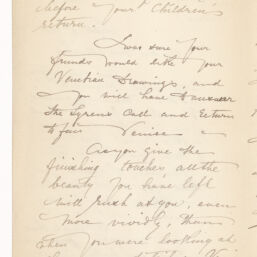 before your children's
return.
I was sure your
friends would like your
Venetian Drawings, and
you will have to answer
the Syrens Call and return
to fair Venice —
Crayon give the
finishing touches all the
beauty you have left
will rush at you, even
more vividly, than
when you were looking at